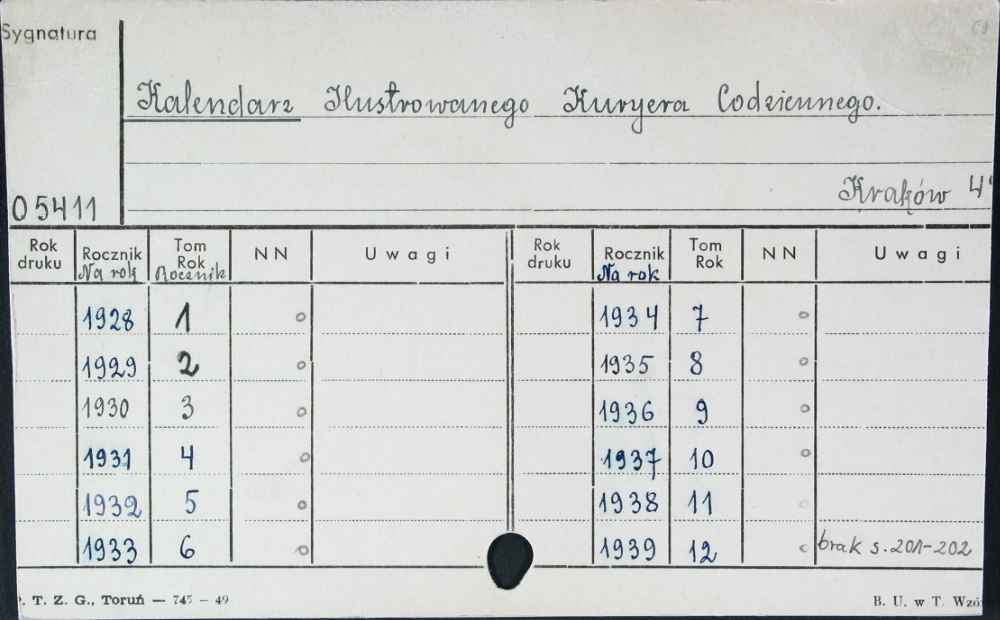 Sygnatura
Kalendarz Ilustrowanego Kuryera Codziennego.
Kraków 4°
05411
Rok druku Rocznik Na rok Tom Rok Rocznik NN Uwagi Rok druku Rocznik Na rok Tom Rok NN Uwagi
1928 1 o 1934 7 o
1929 2 o 1935 8 o
1930 3 o 1936 9 o
1931 4 o 1937 10 o
1932 5 o 1938 11 o
1933 6 o 1939 12 c brak s. 201-202
. T. Z. G., Toruń — 745 — 49 B. U. w T. Wzó